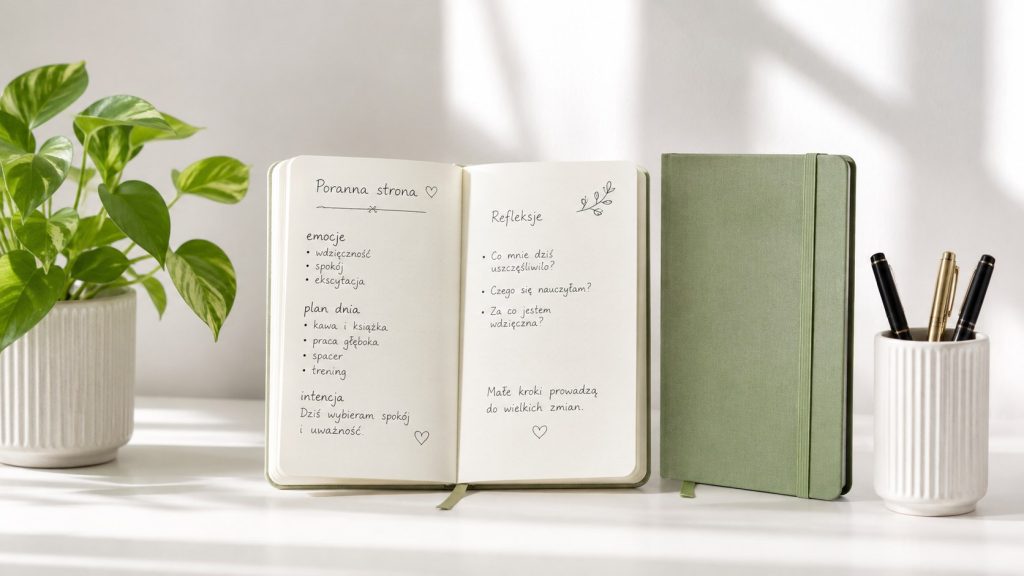 Poranna strona
emocje
• wdzięczność
• spokój
• ekscytacja
plan dnia
• kawa i książka
• praca głęboka
• spacer
• trening
intencja
Dziś wybieram spokój
i uważność.
Refleksje
• Co mnie dziś
uszczęśliwiło?
• Czego się nauczyłam?
• Za co jestem
wdzięczna?
Małe kroki prowadzą
do wielkich zmian.